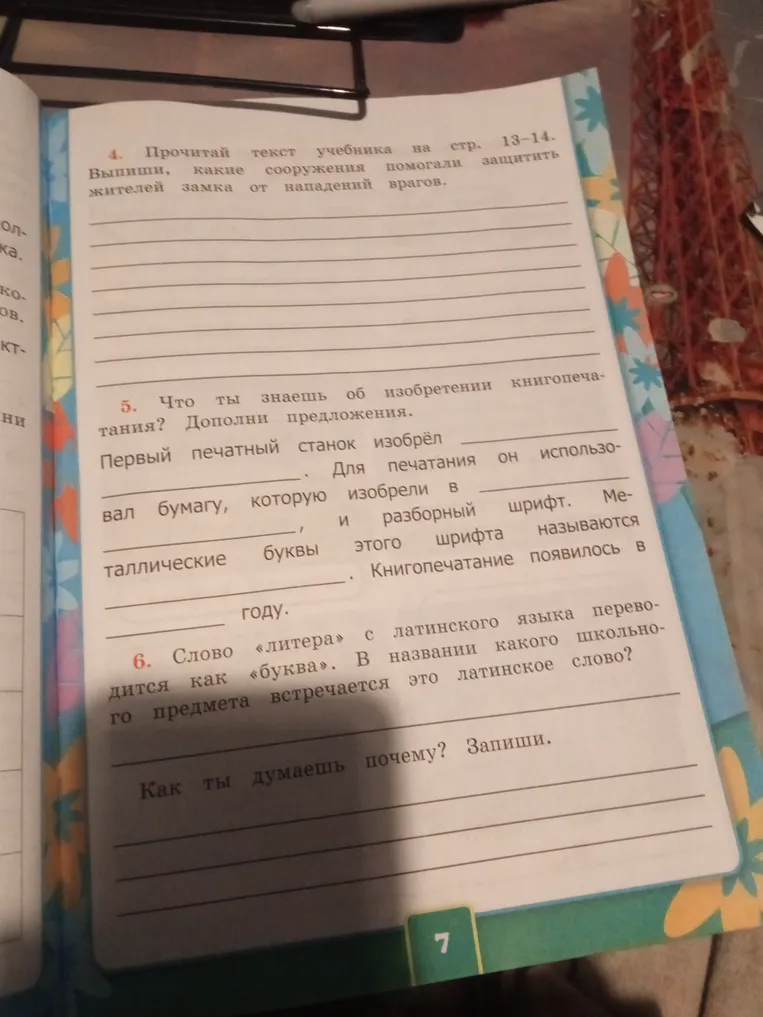 ол-
ка.
ко-
ов.
кт-
ни
4. Прочитай текст учебника на стр. 13–14.
Выпиши, какие сооружения помогали защитить
жителей замка от нападений врагов.
5. Что ты знаешь об изобретении книгопеча-
тания? Дополни предложения.
Первый печатный станок изобрёл
. Для печатания он использо-
вал бумагу, которую изобрели в
, и разборный шрифт. Ме-
таллические буквы этого шрифта называются
. Книгопечатание появилось в
году.
6. Слово «литера» с латинского языка перево-
дится как «буква». В названии какого школьно-
го предмета встречается это латинское слово?
Как ты думаешь почему? Запиши.
7